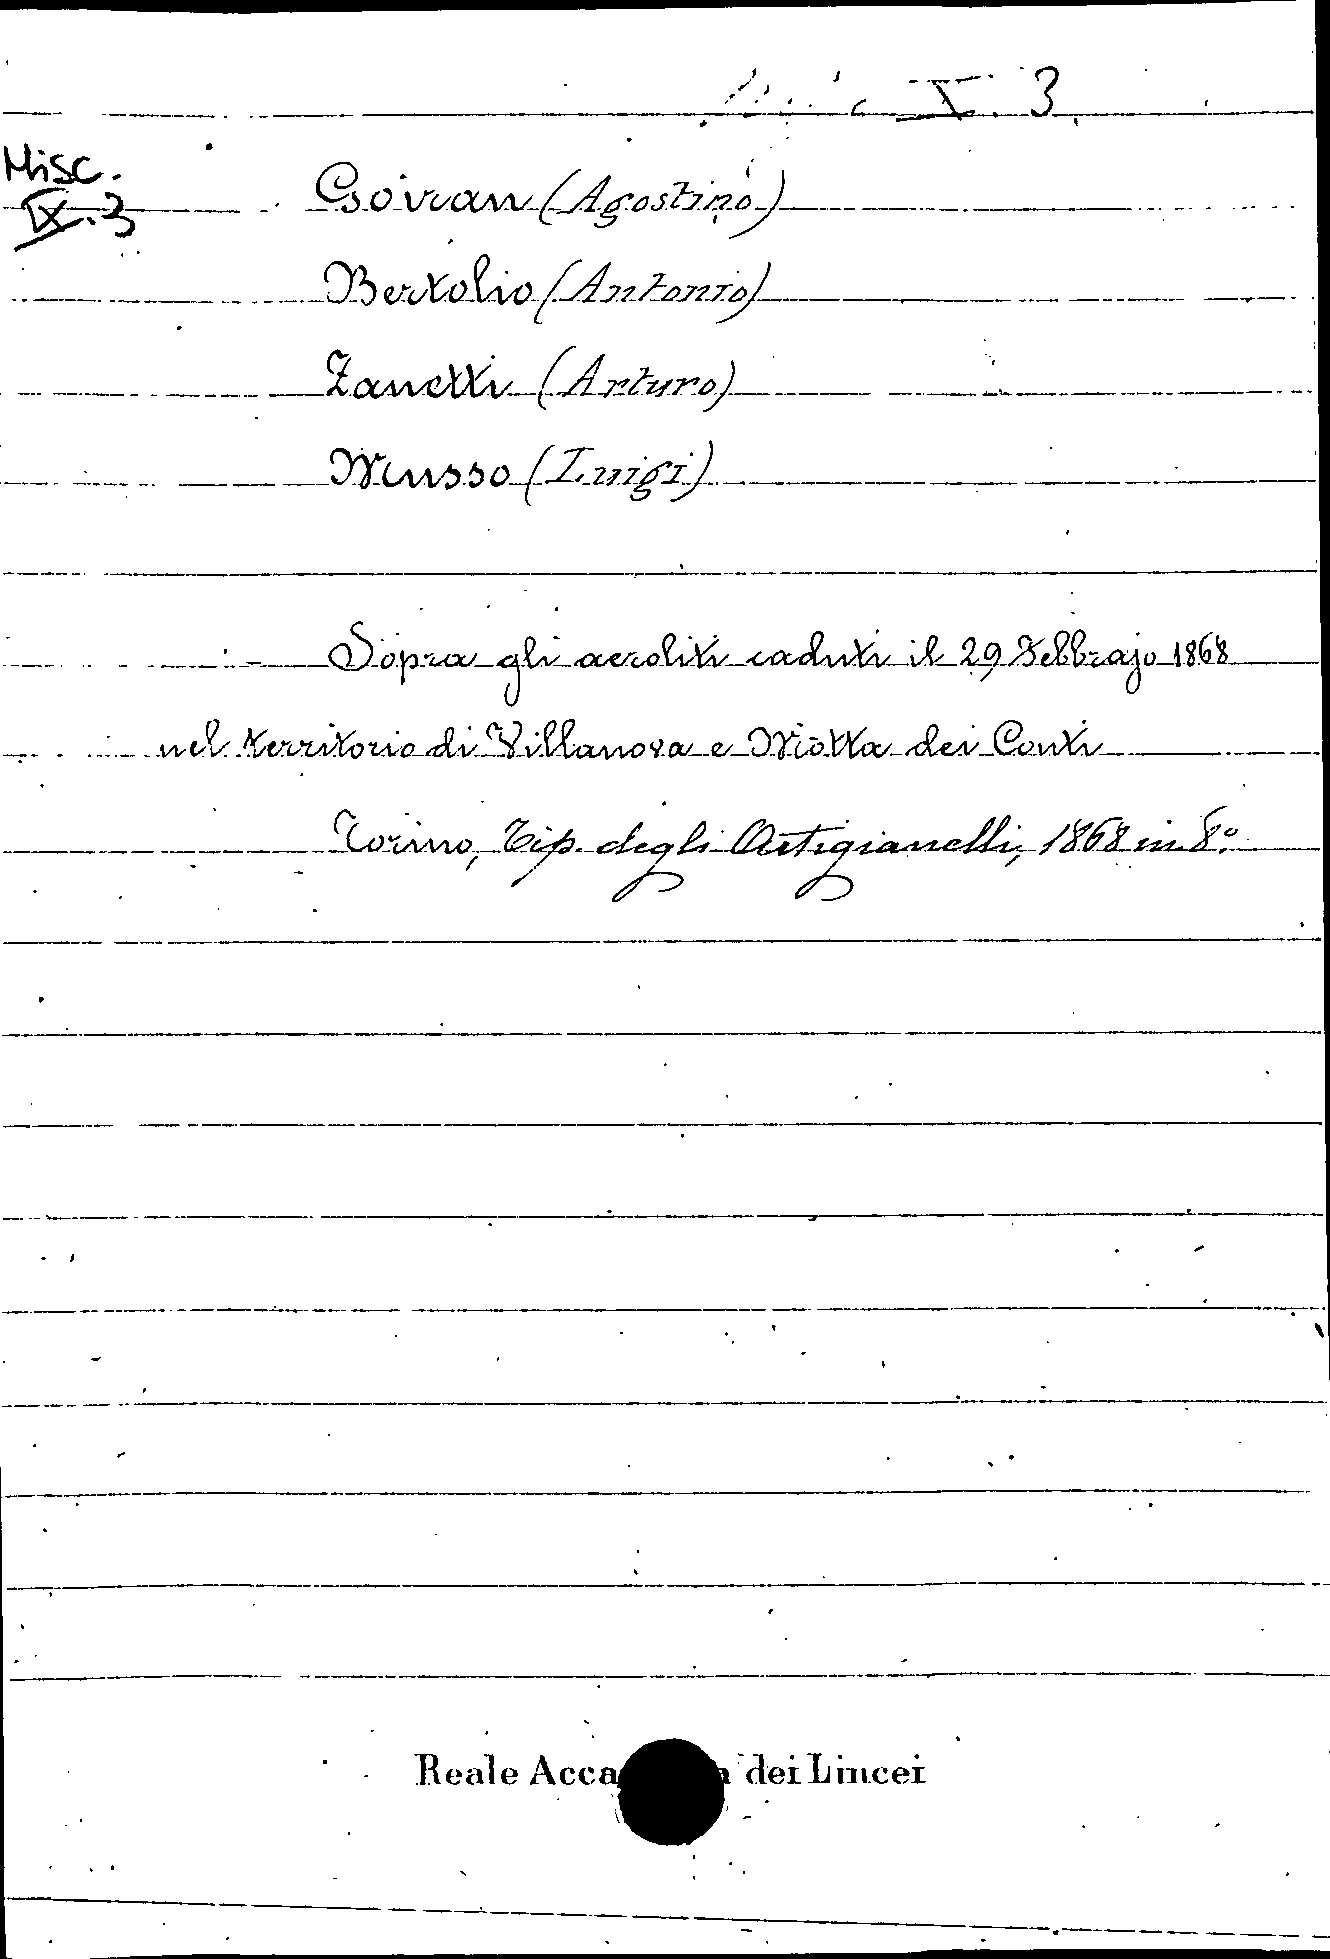 X. 3
Misc.
IX. 3
Goiran (Agostino)
Bertolio (Antonio)
Zanetti (Arturo)
Musso (Luigi)
Sopra gli aeroliti caduti il 29 Febbrajo 1868
nel territorio di Villanova e Motta dei Conti
Torino, Tip. degli Artigianelli, 1868 in 8.º
Reale Acca a dei Lincei